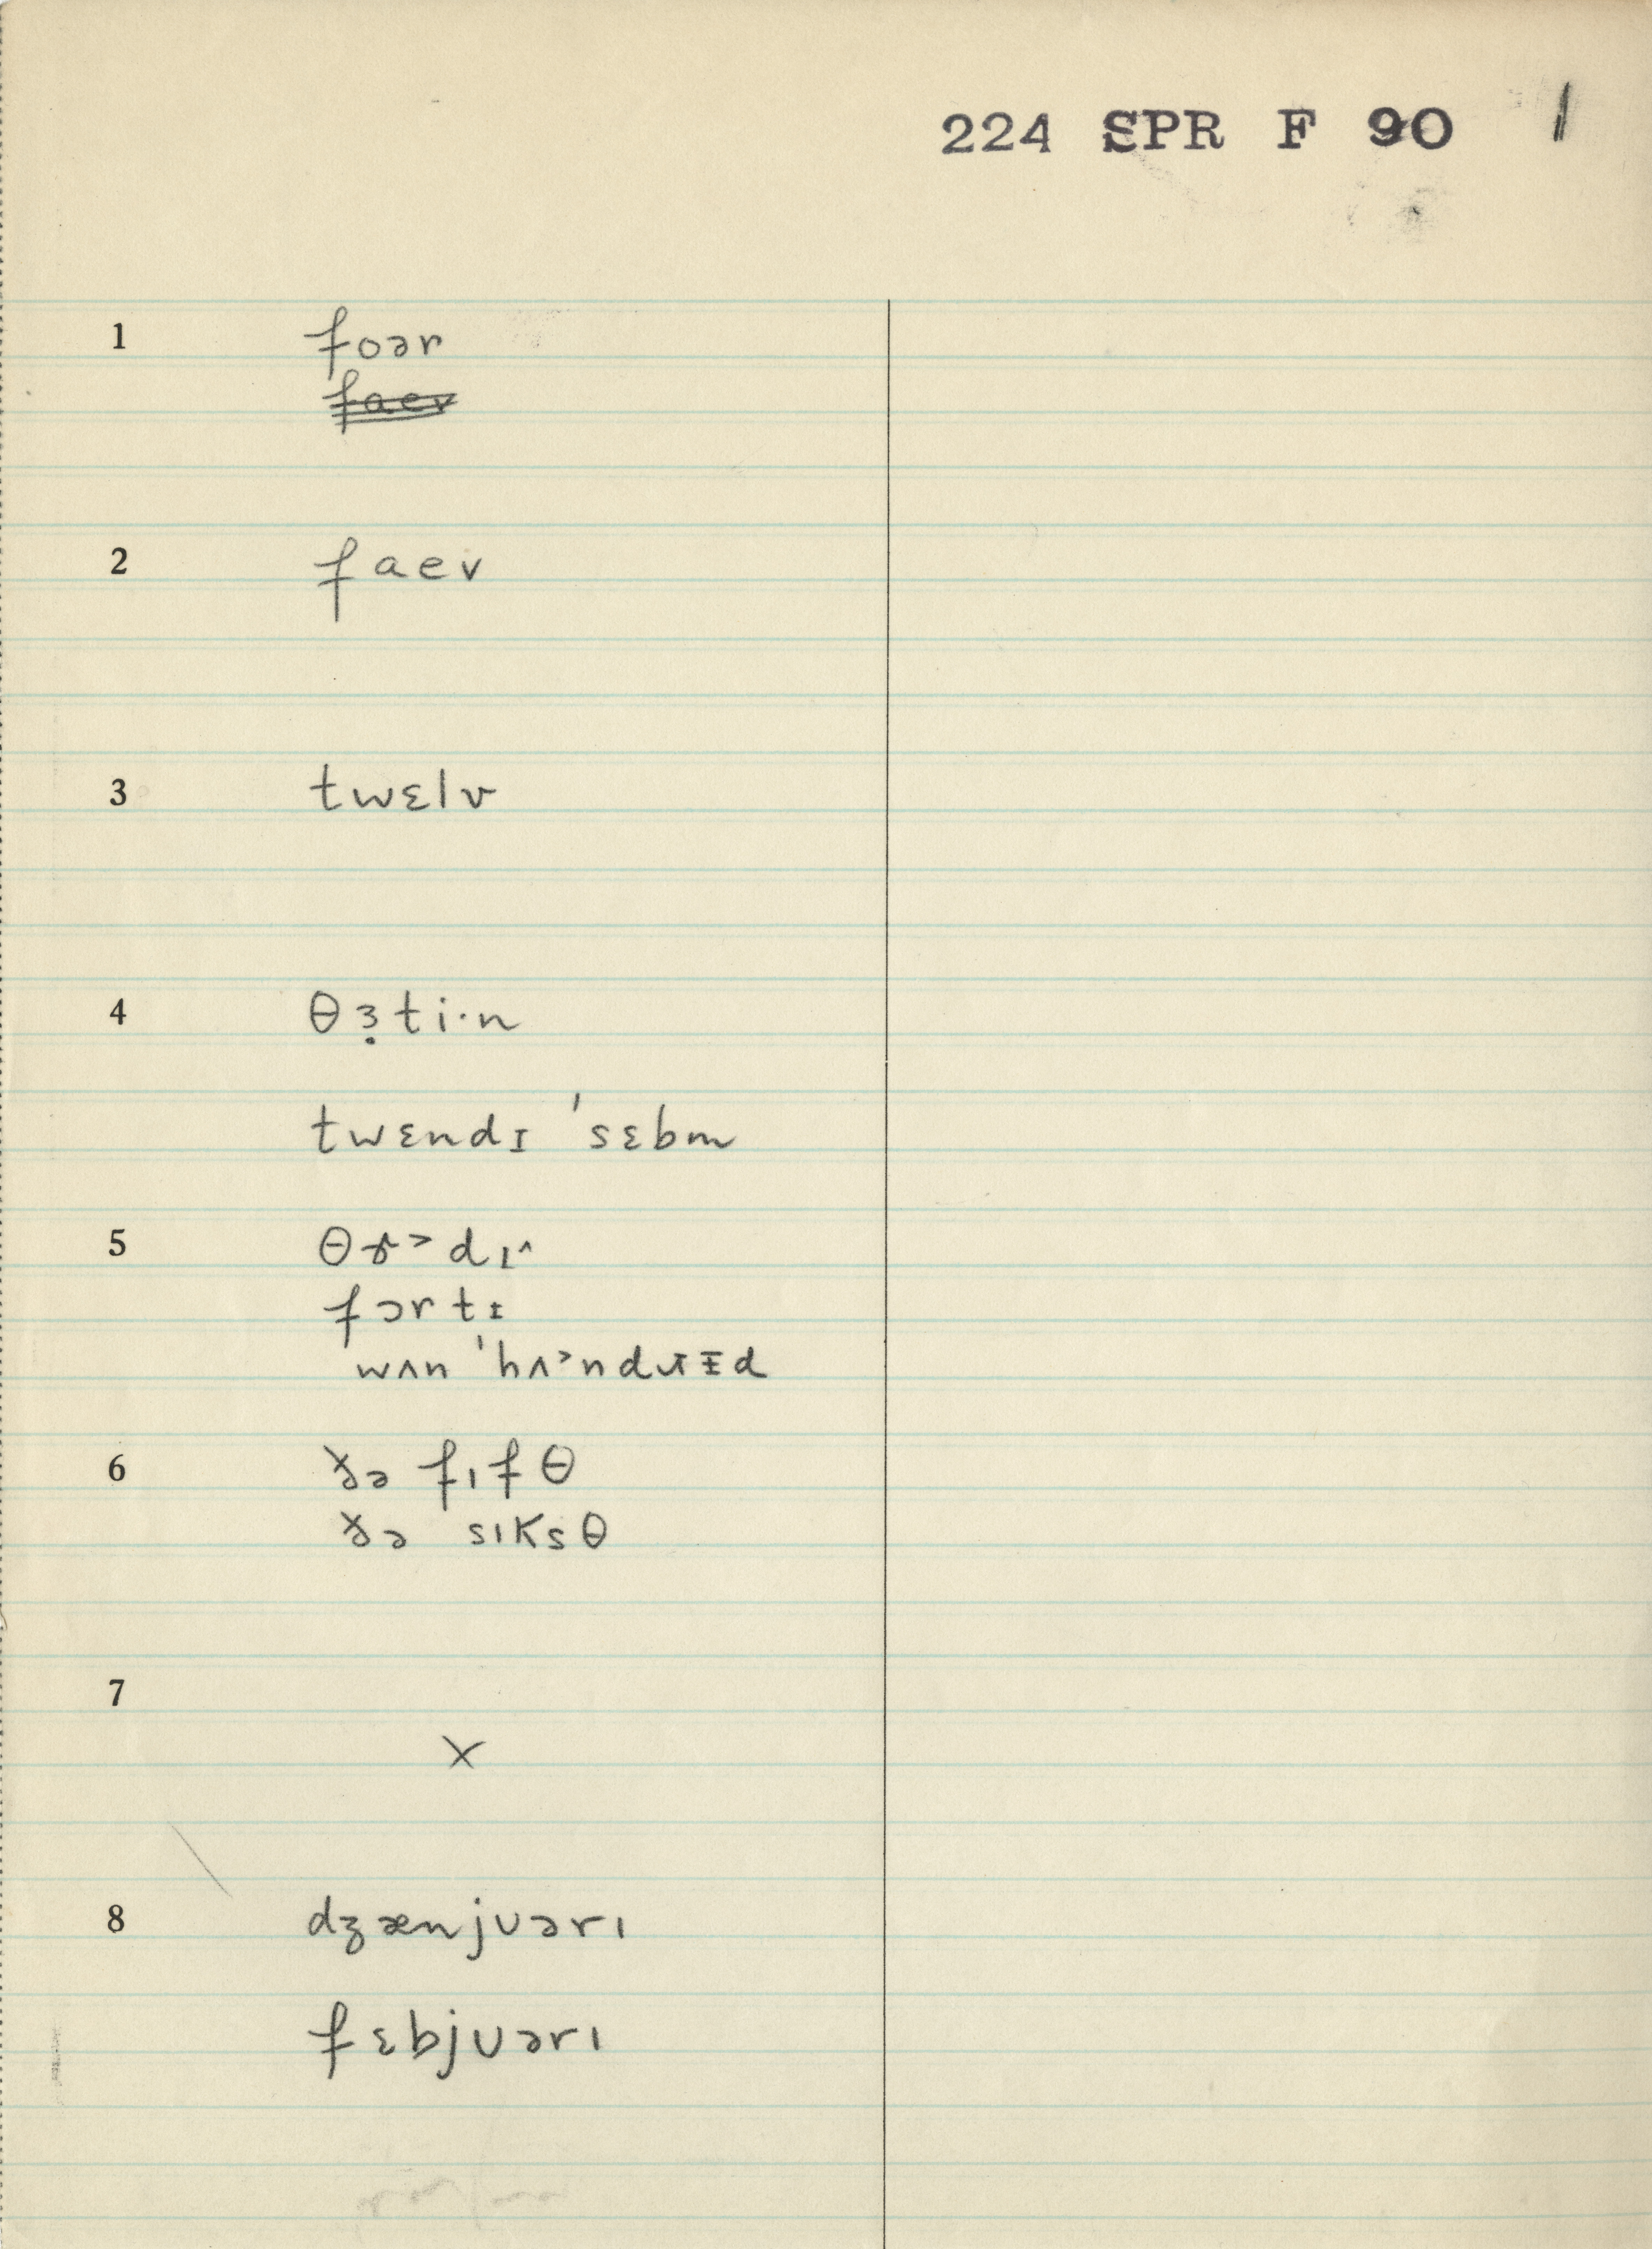 224 SPR F 90 1
1 foər
faev
2 faev
3 twɛlv
4 θɜ̣ti·n
twɛndɪ 'sɛbm
5 θɤ˃dɪ^
fɔrtɪ
wʌn 'hʌ˃ndɹɪ̵d
6 ðə fɪfθ
ðə sɪksθ
7
x
8 dʒænjʊərɪ
fɛbjʊərɪ